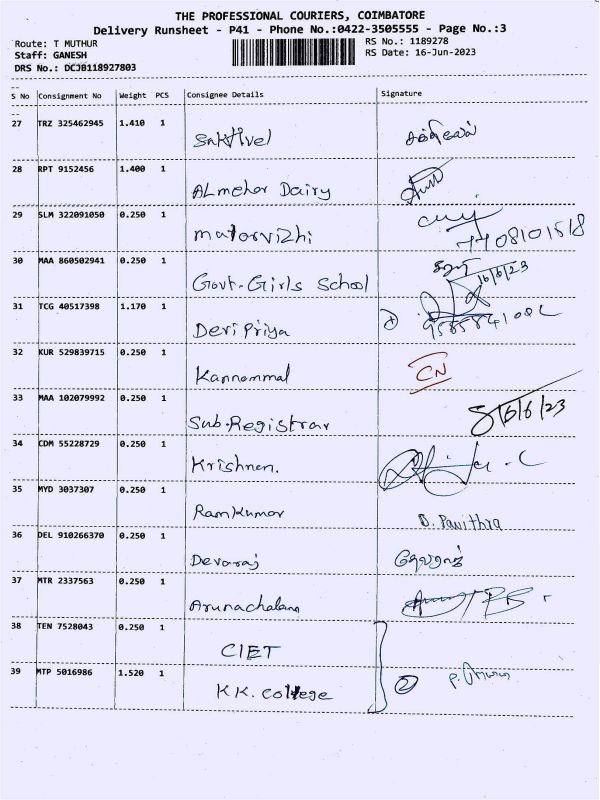 THE PROFESSIONAL COURIERS, COIMBATORE
Delivery Runsheet - P41 - Phone No.:0422-3505555 - Page No.:3
Route: T MUTHUR
RS No.: 1189278
Staff: GANESH
RS Date: 16-Jun-2023
DRS No.: DCJB118927803
S No Consignment No Weight PCS Consignee Details Signature
27 TRZ 325462945 1.410 1 Sakthivel சக்திவேல்
28 RPT 9152456 1.400 1 ALmehar Dairy
29 SLM 322091050 0.250 1 malarvizhi
30 MAA 860502941 0.250 1 Govt. Girls School 16/6/23
31 TCG 40517398 1.170 1 Devi Priya
32 KUR 529839715 0.250 1 Kannammal CN
33 MAA 102079992 0.250 1 Sub.Registrar 16/6/23
34 CDM 55228729 0.250 1 Krishnan.
35 MYD 3037307 0.250 1 Ramkumar D. Pavithra
36 DEL 910266370 0.250 1 Devaraj தேவராஜ்
37 MTR 2337563 0.250 1 Arunachalam
38 TEN 7528043 0.250 1 CIET
39 MTP 5016986 1.520 1 K.K. College 2